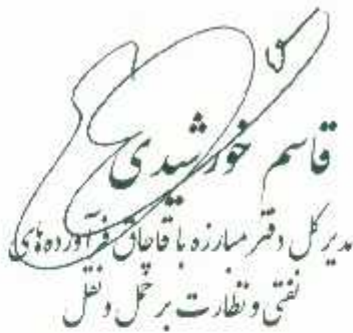 قاسم خورشیدی
مدیر کل دفتر مبارزه با قاچاق فرآورده‌های
نفتی و نظارت بر حمل و نقل